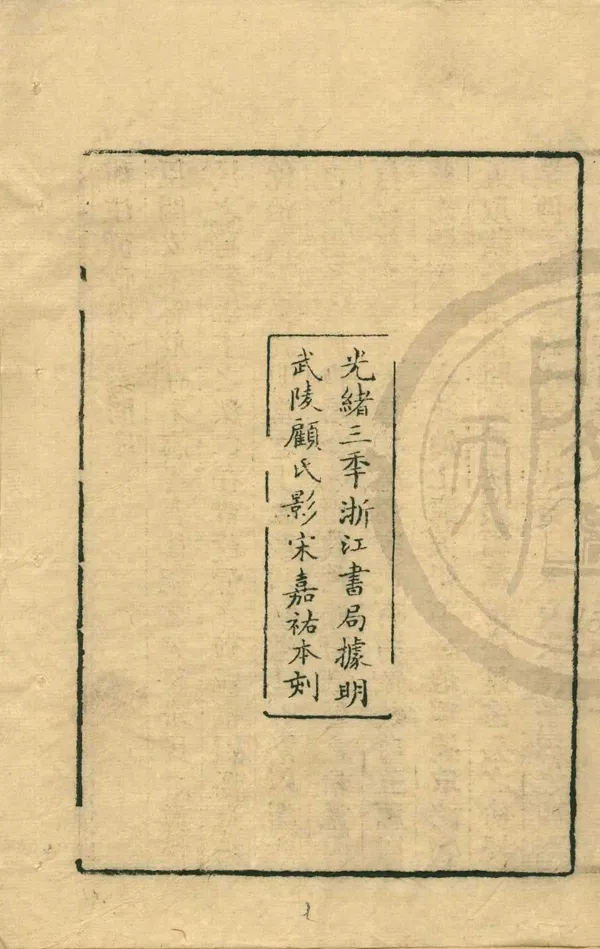 光緒三季浙江書局據明
武陵顧氏影宋嘉祐本刻